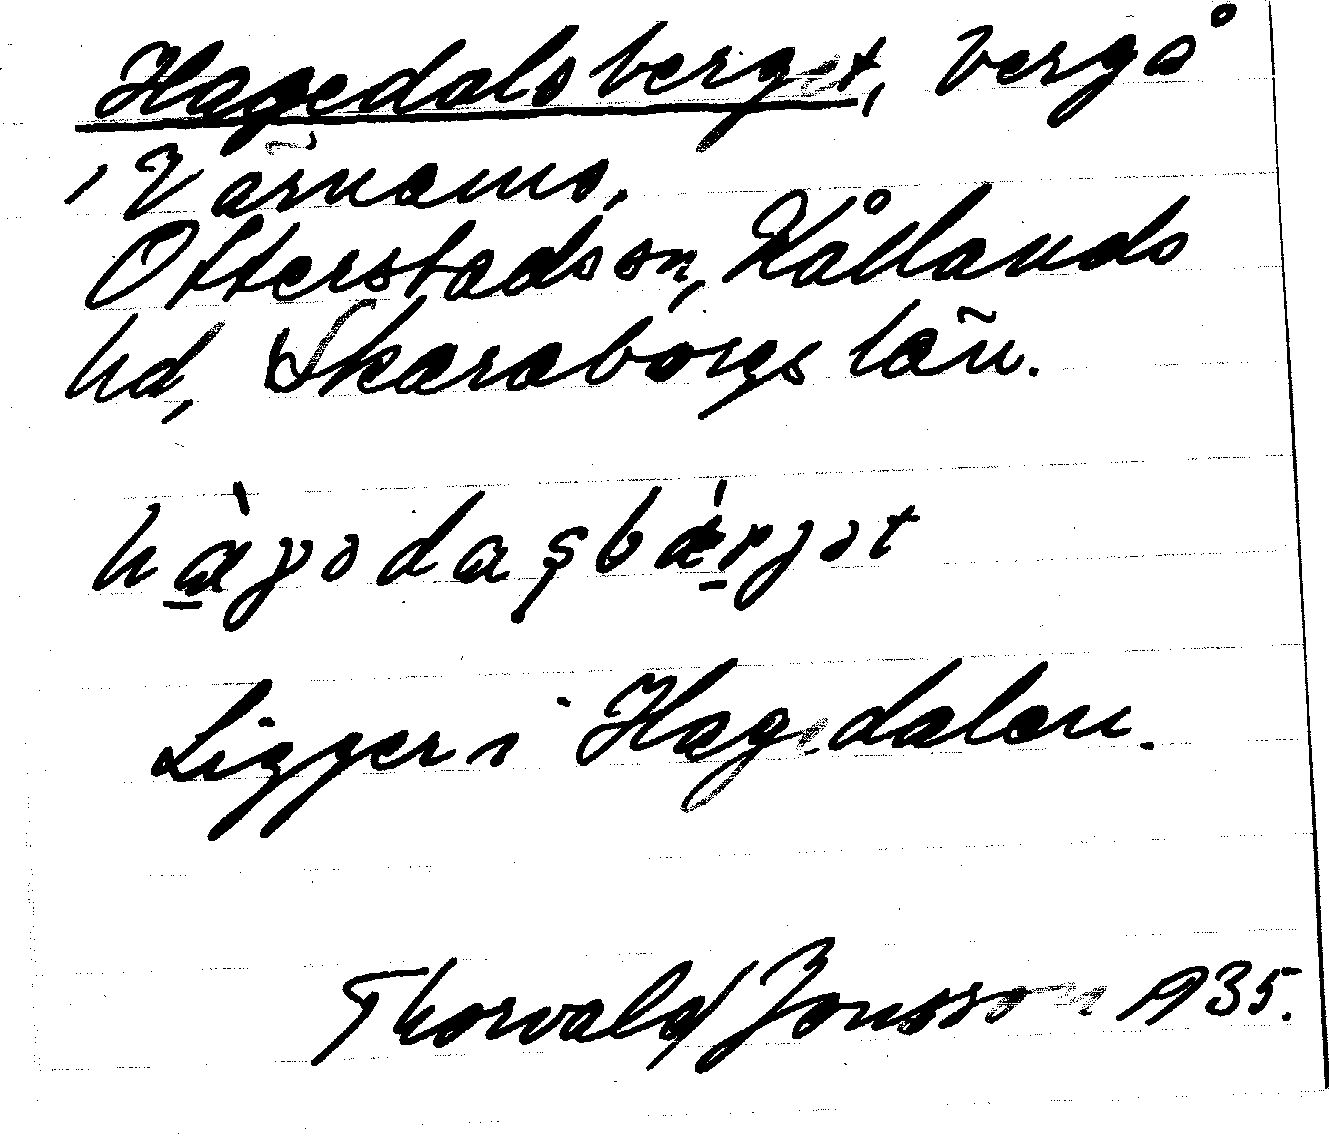 Hagedalsberget, bergå
i Värnäms,
Otterstads sn, Kållands
hd, Skaraborgs län.
Ligger i Hagedalen.
Thorvald Jonsson 1935.